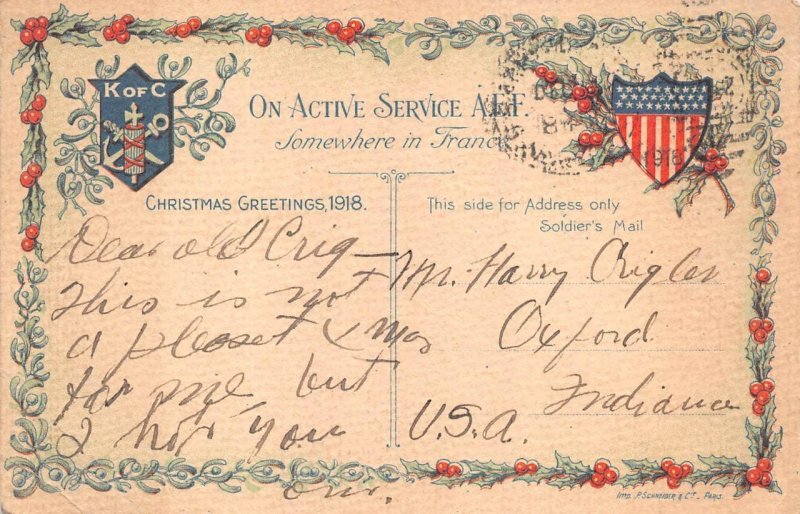 K OF C
ON ACTIVE SERVICE A.E.F.
Somewhere in France
DEC
1918
CHRISTMAS GREETINGS, 1918.
This side for Address only
Soldier's Mail
Dear old Crig —
This is not
a pleaset xmas
for me, but
I hop you
Mr. Harry Crigler
Oxford
Indiana
U.S.A.
IMP. P. SCHNEIDER & Cie - PARIS.